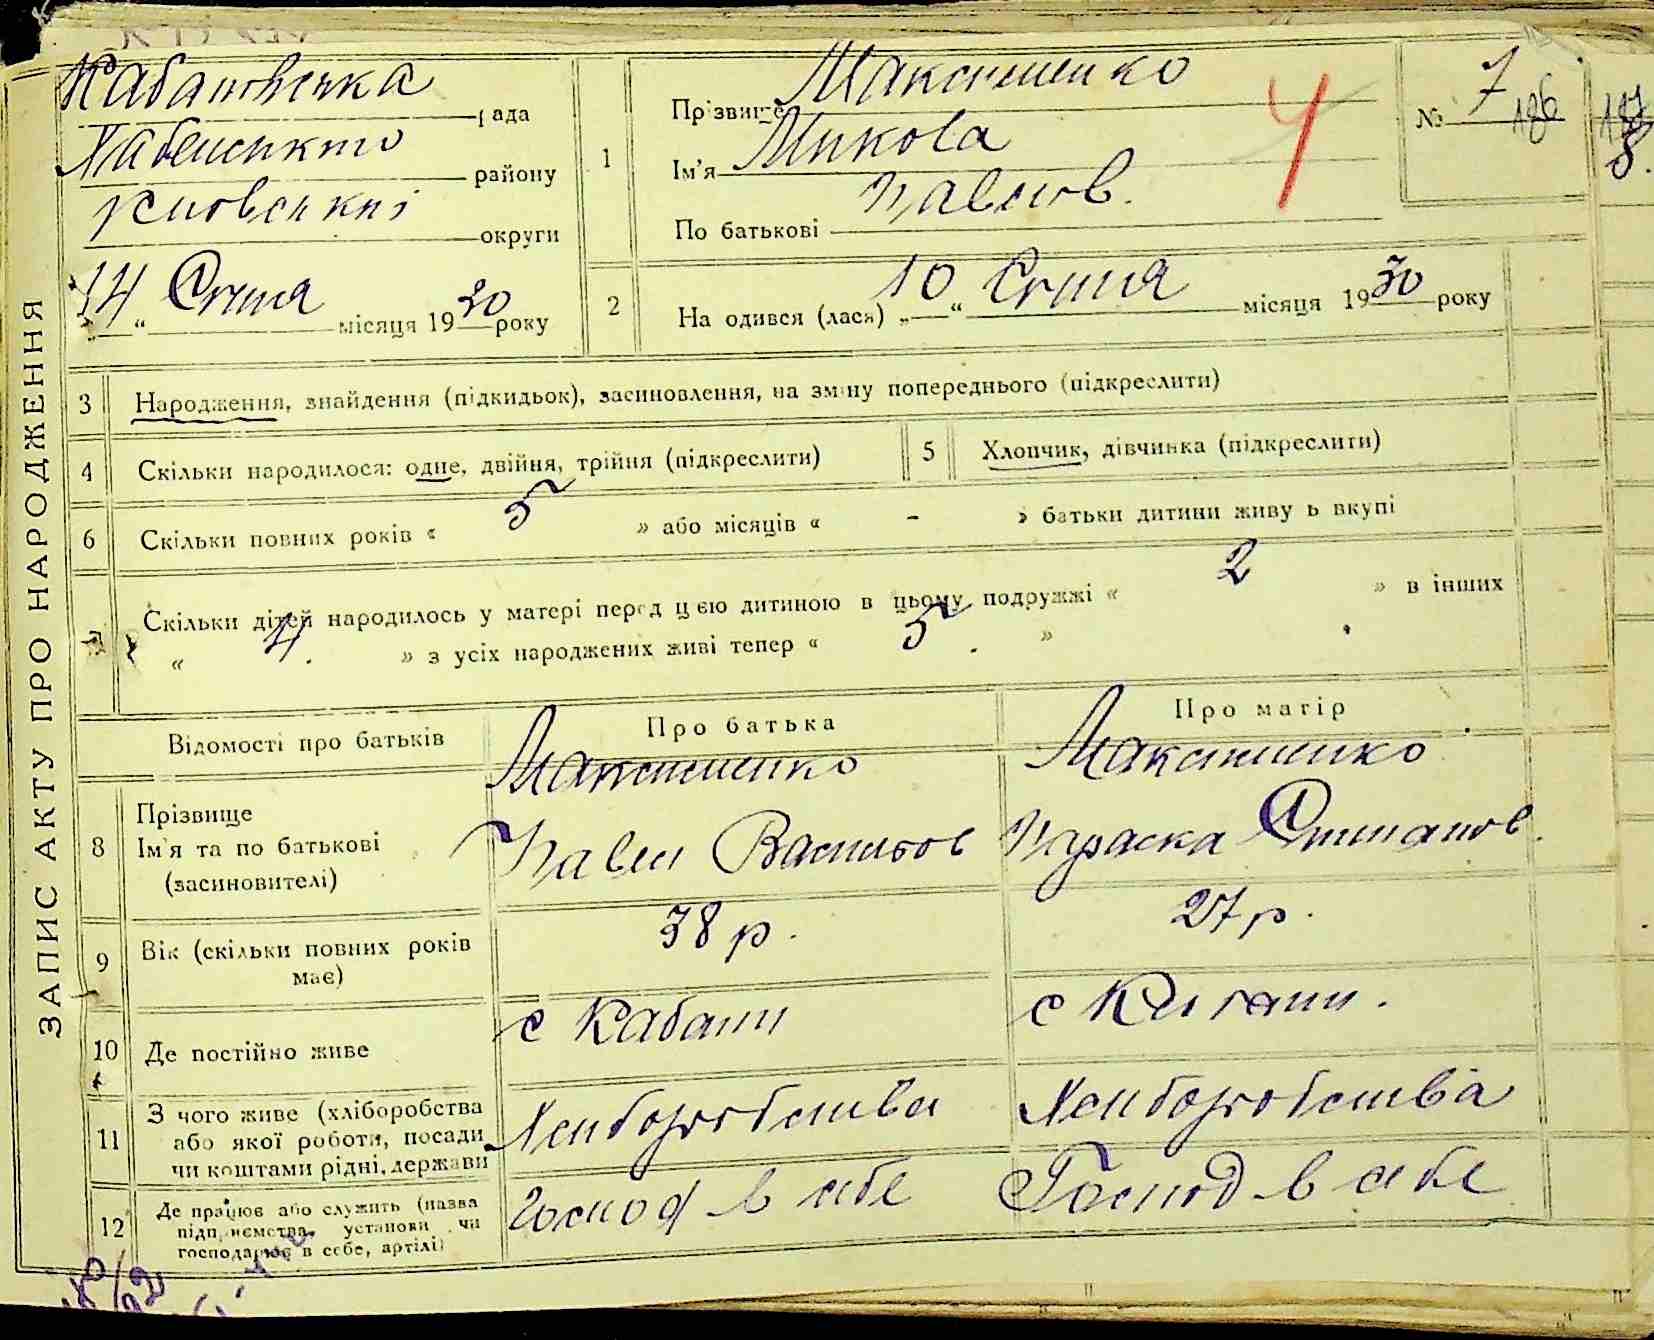 ЗАПИС АКТУ ПРО НАРОДЖЕННЯ
Кабанівська рада
Хабенського району
Київської округи
"14" Січня місяця 1930 року
1
Прізвище Максименко
Ім'я Микола
По батькові Павлов.
№ 7
186
187
8.
4
2
На одився (лася) „10" Січня місяця 1930 року
3 Народження, знайдення (підкидьок), засиновлення, на зміну попереднього (підкреслити)
4 Скільки народилося: одне, двійня, трійня (підкреслити)
5 Хлопчик, дівчинка (підкреслити)
6 Скільки повних років « 5 » або місяців « - » батьки дитини живу ь вкупі
7 Скільки дітей народилось у матері перед цією дитиною в цьому подружжі « 2 » в інших
« 4 . » з усіх народжених живі тепер « 5 . »
Відомості про батьків
Про батька
Про матір
8 Прізвище
Ім'я та по батькові
(засиновителі)
Максименко
Павло Васильов
Максименко
Параска Степанов.
9 Вік (скільки повних років має)
38 р.
27 р.
10 Де постійно живе
с Кабани
с Кабани.
11 З чого живе (хліборобства
або якої роботи, посади
чи коштами рідні, держави
Хліборобства
Хліборобства
12 Де працює або служить (назва
підприємства, установи чи
господарює в себе, артілі)
Господ в себе
Господ в себе